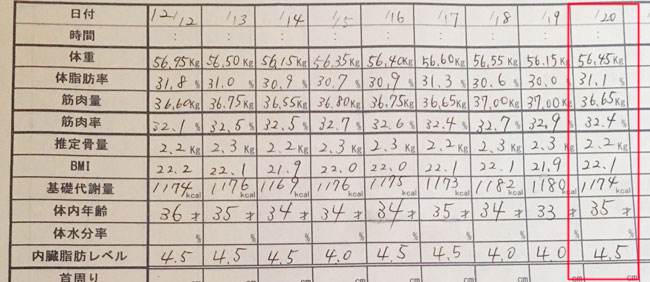 日付 12/12 /13 /14 /15 /16 /17 /18 /19 /20
時間 : : : : : : : : :
体重 56.95Kg 56.50Kg 56.15Kg 56.35Kg 56.40Kg 56.60Kg 56.55Kg 56.15Kg 56.45Kg
体脂肪率 31.8% 31.0% 30.9% 30.7% 30.9% 31.3% 30.6% 30.0% 31.1%
筋肉量 36.60Kg 36.75Kg 36.55Kg 36.80Kg 36.75Kg 36.65Kg 37.00Kg 37.00Kg 36.65Kg
筋肉率 32.1% 32.5% 32.5% 32.7% 32.6% 32.4% 32.7% 32.9% 32.4%
推定骨量 2.2Kg 2.3Kg 2.2Kg 2.3Kg 2.3Kg 2.2Kg 2.3Kg 2.3Kg 2.2Kg
BMI 22.2 22.1 21.9 22.0 22.0 22.1 22.1 21.9 22.1
基礎代謝量 1174kcal 1176kcal 1169kcal 1176kcal 1175kcal 1173kcal 1182kcal 1180kcal 1174kcal
体内年齢 36才 35才 34才 34才 34才 35才 34才 33才 35才
体水分率 % % % % % % % % %
内臓脂肪レベル 4.5 4.5 4.5 4.0 4.5 4.5 4.0 4.0 4.5
首周り cm cm cm cm cm